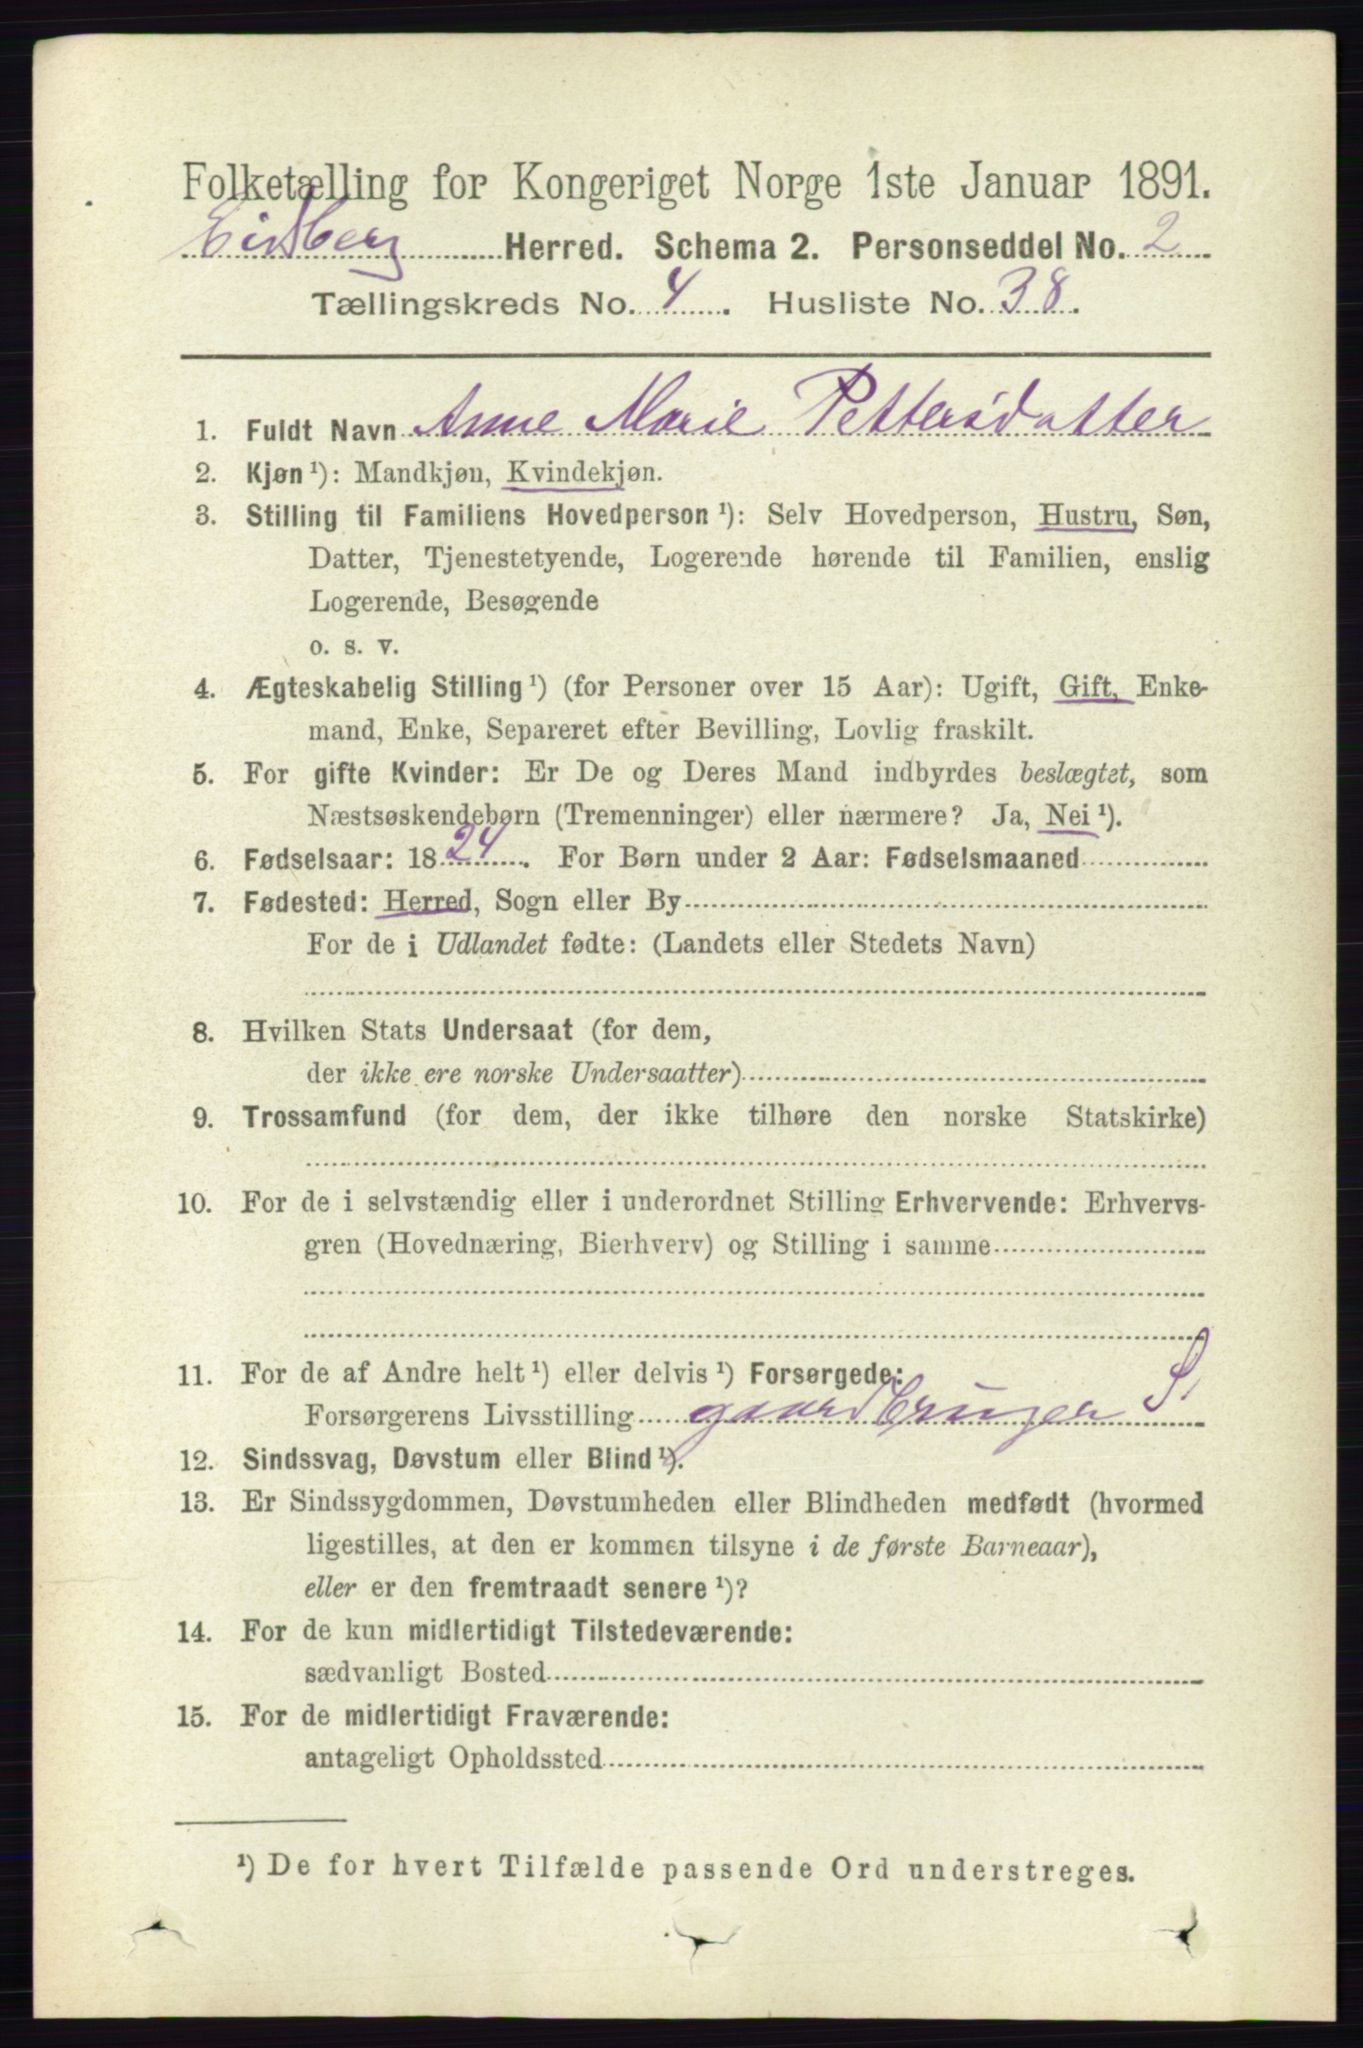 Folketælling for Kongeriget Norge 1ste Januar 1891.
Eidsberg Herred. Schema 2. Personseddel No. 2
Tællingskreds No. 4. Husliste No. 38.
1. Fuldt Navn Anne Marie Pettersdatter
2. Kjøn ¹): Mandkjøn, Kvindekjøn.
3. Stilling til Familiens Hovedperson ¹): Selv Hovedperson, Hustru, Søn,
Datter, Tjenestetyende, Logerende hørende til Familien, enslig
Logerende, Besøgende
o. s. v.
4. Ægteskabelig Stilling ¹) (for Personer over 15 Aar): Ugift, Gift, Enke-
mand, Enke, Separeret efter Bevilling, Lovlig fraskilt.
5. For gifte Kvinder: Er De og Deres Mand indbyrdes beslægtet, som
Næstsøskendebørn (Tremenninger) eller nærmere? Ja, Nei ¹).
6. Fødselsaar: 1824. For Børn under 2 Aar: Fødselsmaaned
7. Fødested: Herred, Sogn eller By
For de i Udlandet fødte: (Landets eller Stedets Navn)
8. Hvilken Stats Undersaat (for dem,
der ikke ere norske Undersaatter)
9. Trossamfund (for dem, der ikke tilhøre den norske Statskirke)
10. For de i selvstændig eller i underordnet Stilling Erhvervende: Erhvervs-
gren (Hovednæring, Bierhverv) og Stilling i samme
11. For de af Andre helt ¹) eller delvis ¹) Forsørgede:
Forsørgerens Livsstilling gaardbruger S.
12. Sindssvag, Døvstum eller Blind ¹).
13. Er Sindssygdommen, Døvstumheden eller Blindheden medfødt (hvormed
ligestilles, at den er kommen tilsyne i de første Barneaar),
eller er den fremtraadt senere ¹)?
14. For de kun midlertidigt Tilstedeværende:
sædvanligt Bosted
15. For de midlertidigt Fraværende:
antageligt Opholdssted
¹) De for hvert Tilfælde passende Ord understreges.